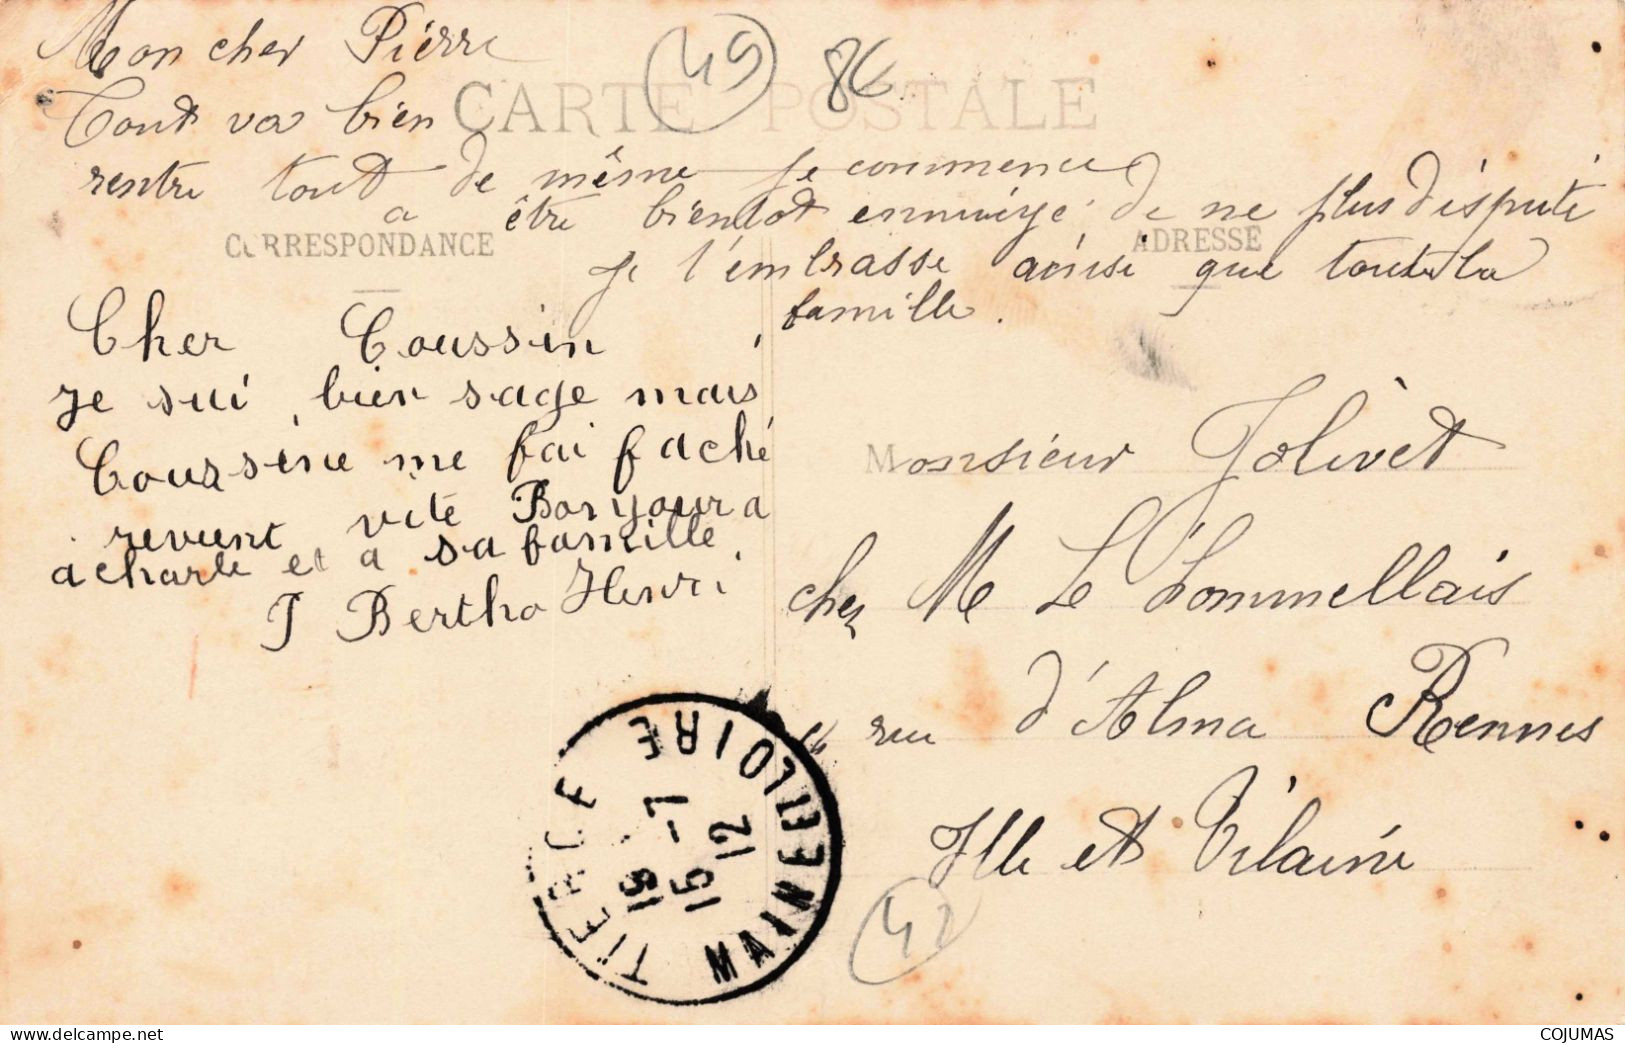 Mon cher Pierre
49
8€
CARTE POSTALE
Tout va bien
rentre tout de même je commence
a être bientot ennuiyé de ne plus disputé
CORRESPONDANCE
ADRESSE
Je t'embrasse ainsi que toute la
famille.
Cher Coussin
je sui bien sage mais
Coussine me fai faché
revient vite Bonjour a
a charle et a sa famille.
J Bertho Henri
Monsieur Jolivet
chez M Le Lommellais
rue d'Alma Rennes
Ille et Vilaine
TIERCÉ
MAINE ET LOIRE
19 -7
15 12
42
delcampe.net
COJUMAS